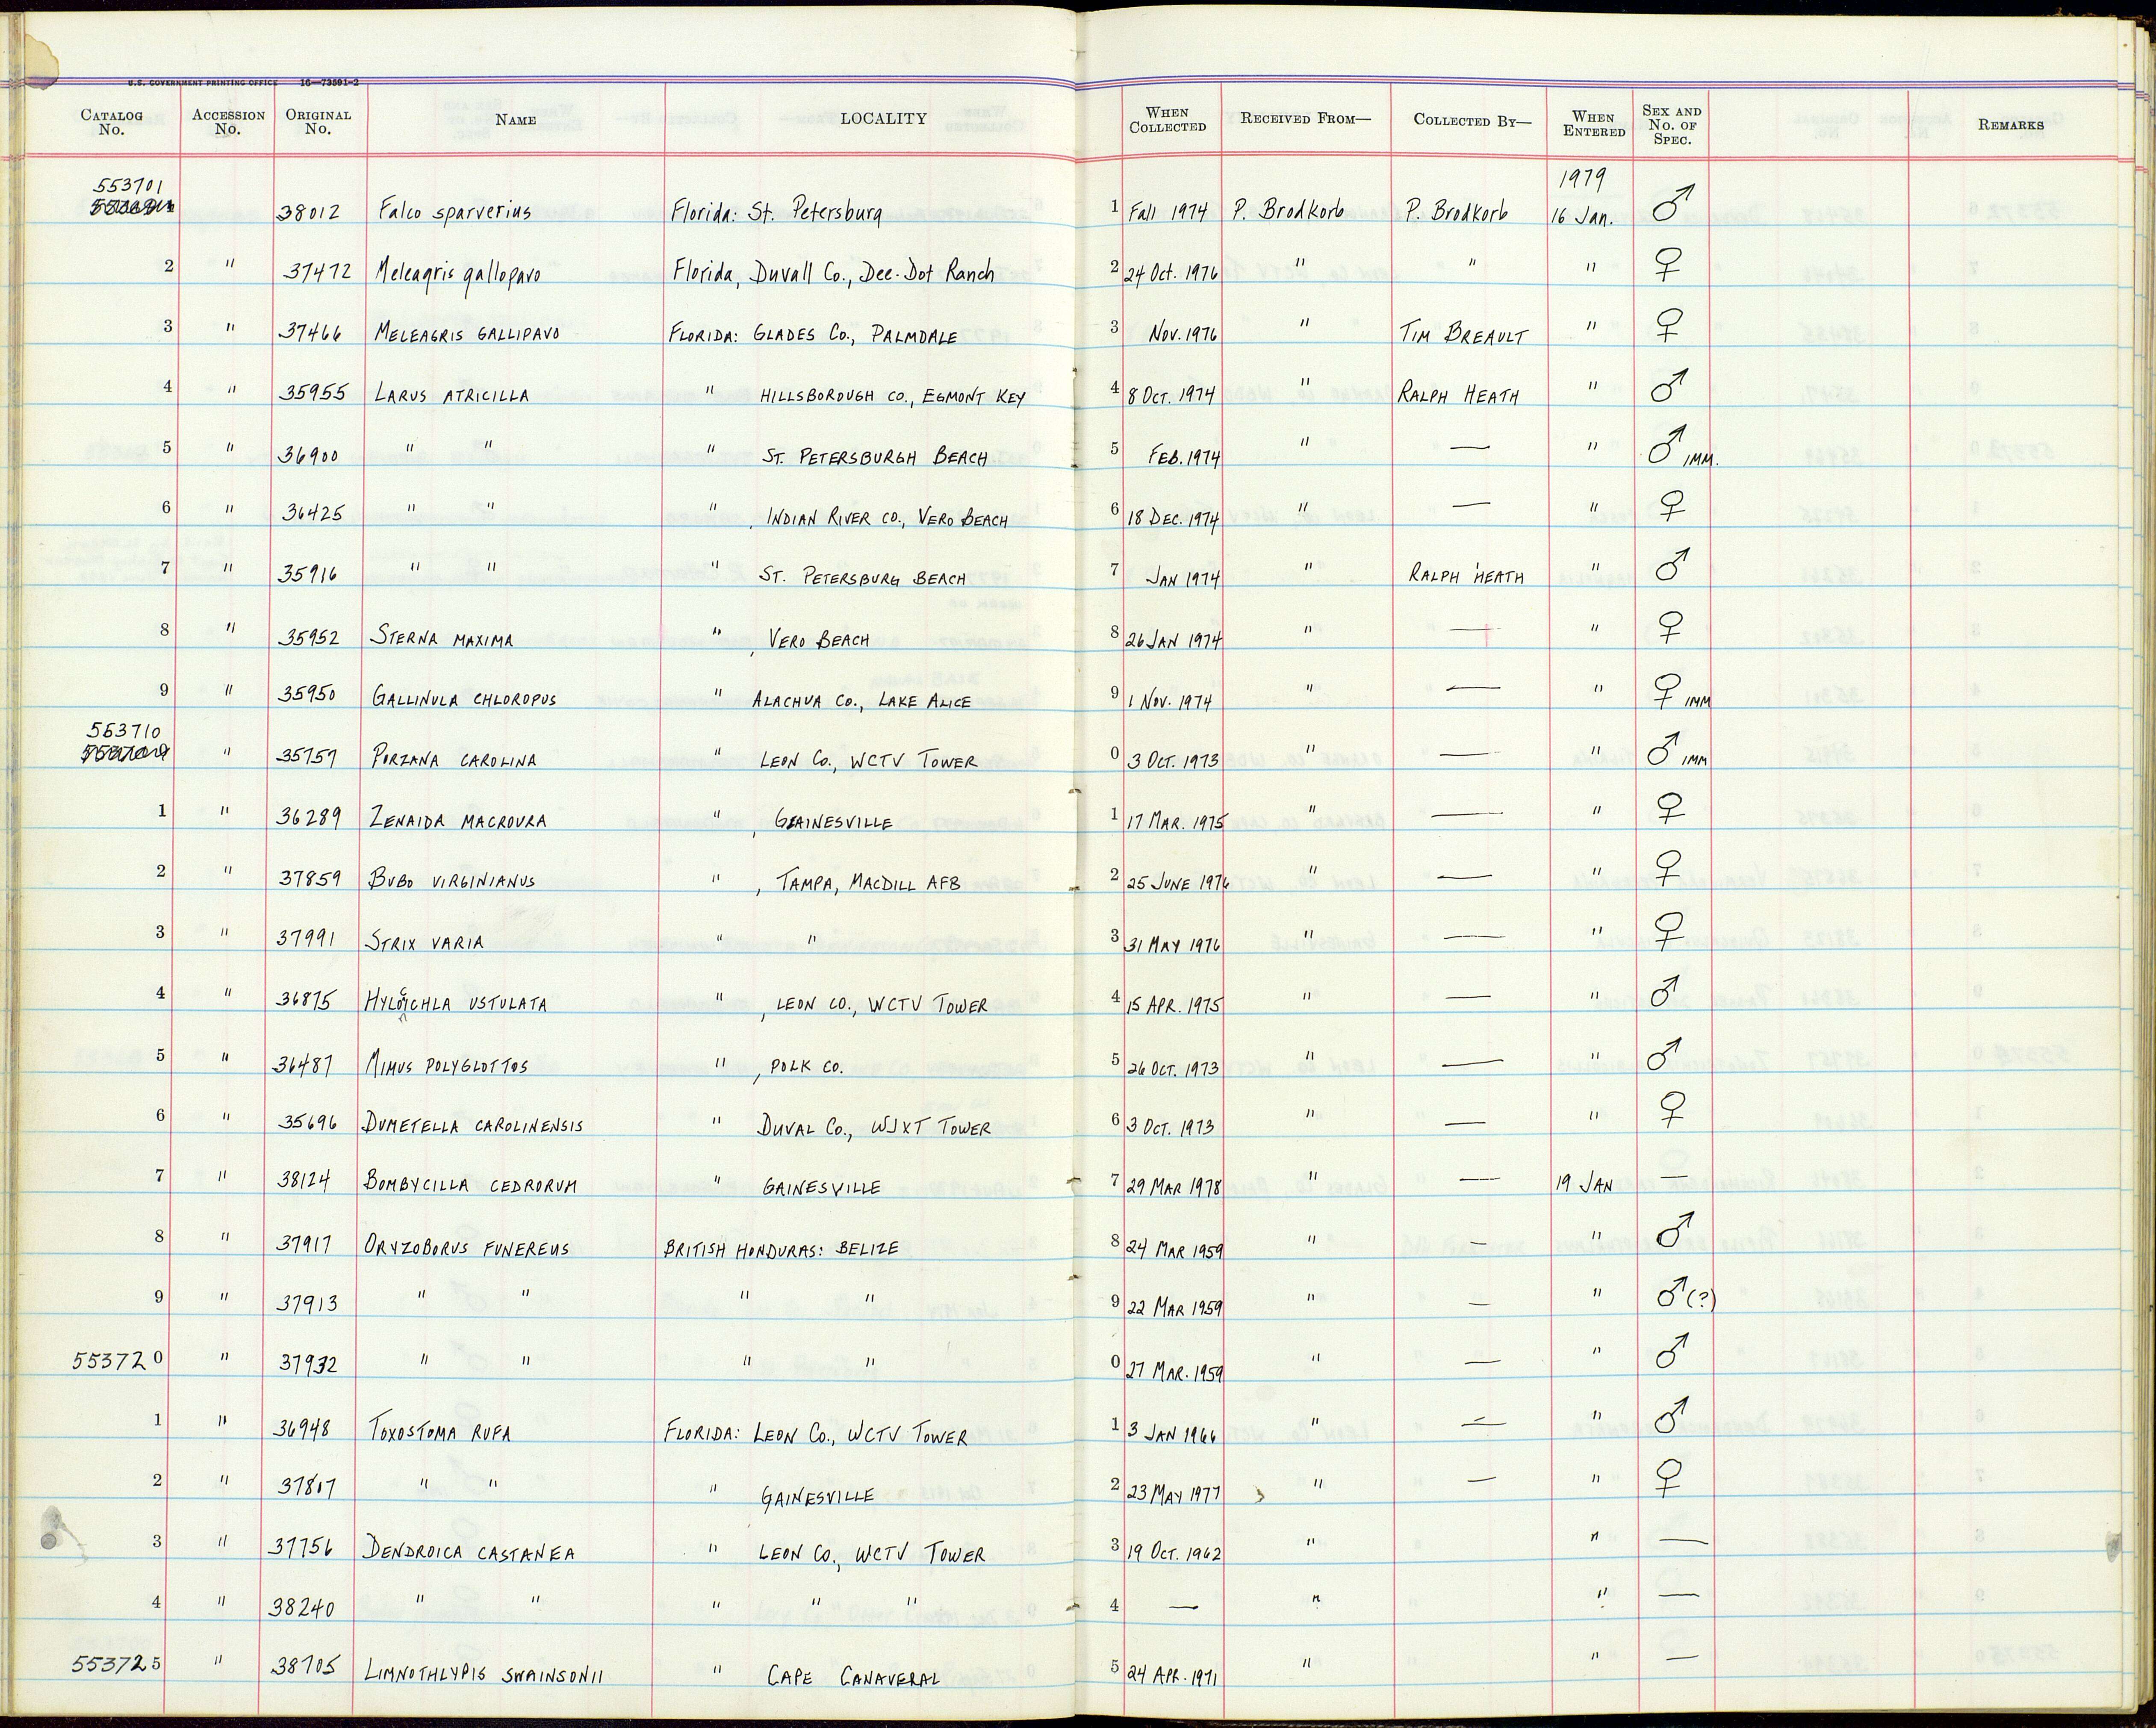 U.S. GOVERNMENT PRINTING OFFICE 16—73591-2
CATALOG No. ACCESSION No. ORIGINAL No. NAME LOCALITY WHEN COLLECTED RECEIVED FROM— COLLECTED BY— WHEN ENTERED SEX AND No. OF SPEC. REMARKS
553701 1979
38012 Falco sparverius Florida: St. Petersburg 1 Fall 1974 P. Brodkorb P. Brodkorb 16 Jan. ♂
2 " 37472 Meleagris gallopavo Florida, Duvall Co., Dee-Dot Ranch 2 24 Oct. 1976 " " " ♀
3 " 37466 MELEAGRIS GALLIPAVO FLORIDA: GLADES CO., PALMDALE 3 NOV. 1976 " TIM BREAULT " ♀
4 " 35955 LARUS ATRICILLA " HILLSBOROUGH CO., EGMONT KEY 4 8 OCT. 1974 " RALPH HEATH " ♂
5 " 36900 " " " ST. PETERSBURGH BEACH 5 FEB. 1974 " — " ♂ IMM.
6 " 36425 " " " , INDIAN RIVER CO., VERO BEACH 6 18 DEC. 1974 " — " ♀
7 " 35916 " " " ST. PETERSBURG BEACH 7 JAN 1974 " RALPH HEATH " ♂
8 " 35952 STERNA MAXIMA " , VERO BEACH 8 26 JAN 1974 " — " ♀
9 " 35950 GALLINULA CHLOROPUS " ALACHUA CO., LAKE ALICE 9 1 NOV. 1974 " — " ♀ IMM
553710
" 35757 PORZANA CAROLINA " LEON CO., WCTV TOWER 0 3 OCT. 1973 " — " ♂ IMM
1 " 36289 ZENAIDA MACROURA " , GAINESVILLE 1 17 MAR. 1975 " — " ♀
2 " 37859 BUBO VIRGINIANUS " , TAMPA, MACDILL AFB 2 25 JUNE 1976 " — " ♀
3 " 37991 STRIX VARIA " " 3 31 MAY 1976 " — " ♀
4 " 36875 HYLOCICHLA USTULATA " , LEON CO., WCTV TOWER 4 15 APR. 1975 " — " ♂
5 " 36487 MIMUS POLYGLOTTOS " , POLK CO. 5 26 OCT. 1973 " — " ♂
6 " 35696 DUMETELLA CAROLINENSIS " DUVAL CO., WJXT TOWER 6 3 OCT. 1973 " — " ♀
7 " 38124 BOMBYCILLA CEDRORUM " GAINESVILLE 7 29 MAR 1978 " — 19 JAN —
8 " 37917 ORYZOBORUS FUNEREUS BRITISH HONDURAS: BELIZE 8 24 MAR 1959 " — " ♂
9 " 37913 " " " " 9 22 MAR 1959 " — " ♂(?)
553720 " 37932 " " " " 0 27 MAR. 1959 " — " ♂
1 " 36948 TOXOSTOMA RUFA FLORIDA: LEON CO., WCTV TOWER 1 3 JAN 1966 " — " ♂
2 " 37817 " " " GAINESVILLE 2 23 MAY 1977 " — " ♀
3 " 37756 DENDROICA CASTANEA " LEON CO., WCTV TOWER 3 19 OCT. 1962 " " —
4 " 38240 " " " " " 4 — " " —
553725 " 38705 LIMNOTHLYPIS SWAINSONII " CAPE CANAVERAL 5 24 APR. 1971 " " —